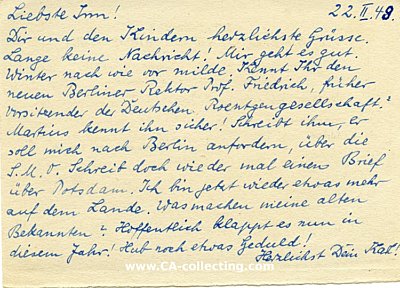 Liebste Irm! 22.II.49.
Dir und den Kindern herzlichste Grüsse.
Lange keine Nachricht! Mir geht es gut.
Winter nach wie vor milde. Kennt Ihr den
neuen Berliner Rektor Prof. Friedrich, früher
vorsitzender der Deutschen Roentgengesellschaft?
Martius kennt ihn sicher! Schreibt ihm, er
soll mich nach Berlin anfordern, über die
S.M.V. Schreib doch wieder mal einen Brief
über Potsdam. Ich bin jetzt wieder etwas mehr
auf dem Lande. Was machen meine alten
Bekannten? Hoffentlich klappt es nun in
diesem Jahr! Hab noch etwas Geduld!
Herzlichst Dein
www.CA-collecting.com